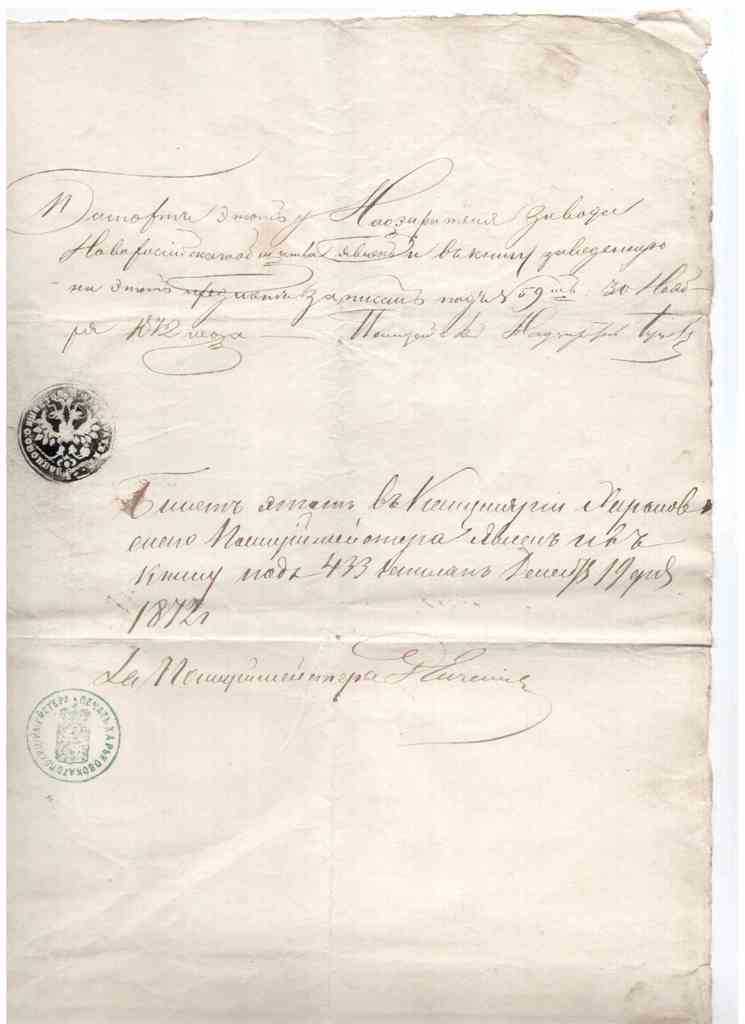 Паспортъ этотъ у Надзирателя завода
Новороссійскаго общества явленъ и въ книгу заведенную
на этотъ предметъ записанъ подъ № 59мъ. 30 Нояб-
ря 1872 года Полицейскій Надзиратель
Билетъ этотъ въ Канцеляріи Харьков-
скаго Полиціймейстера явленъ и въ
книгу подъ 433 записанъ Декабр 19 дня
1872 г
За Полиціймейстера
ПЕЧАТЬ ХАРЬКОВСКАГО ПОЛИЦІЙМЕЙСТЕРА